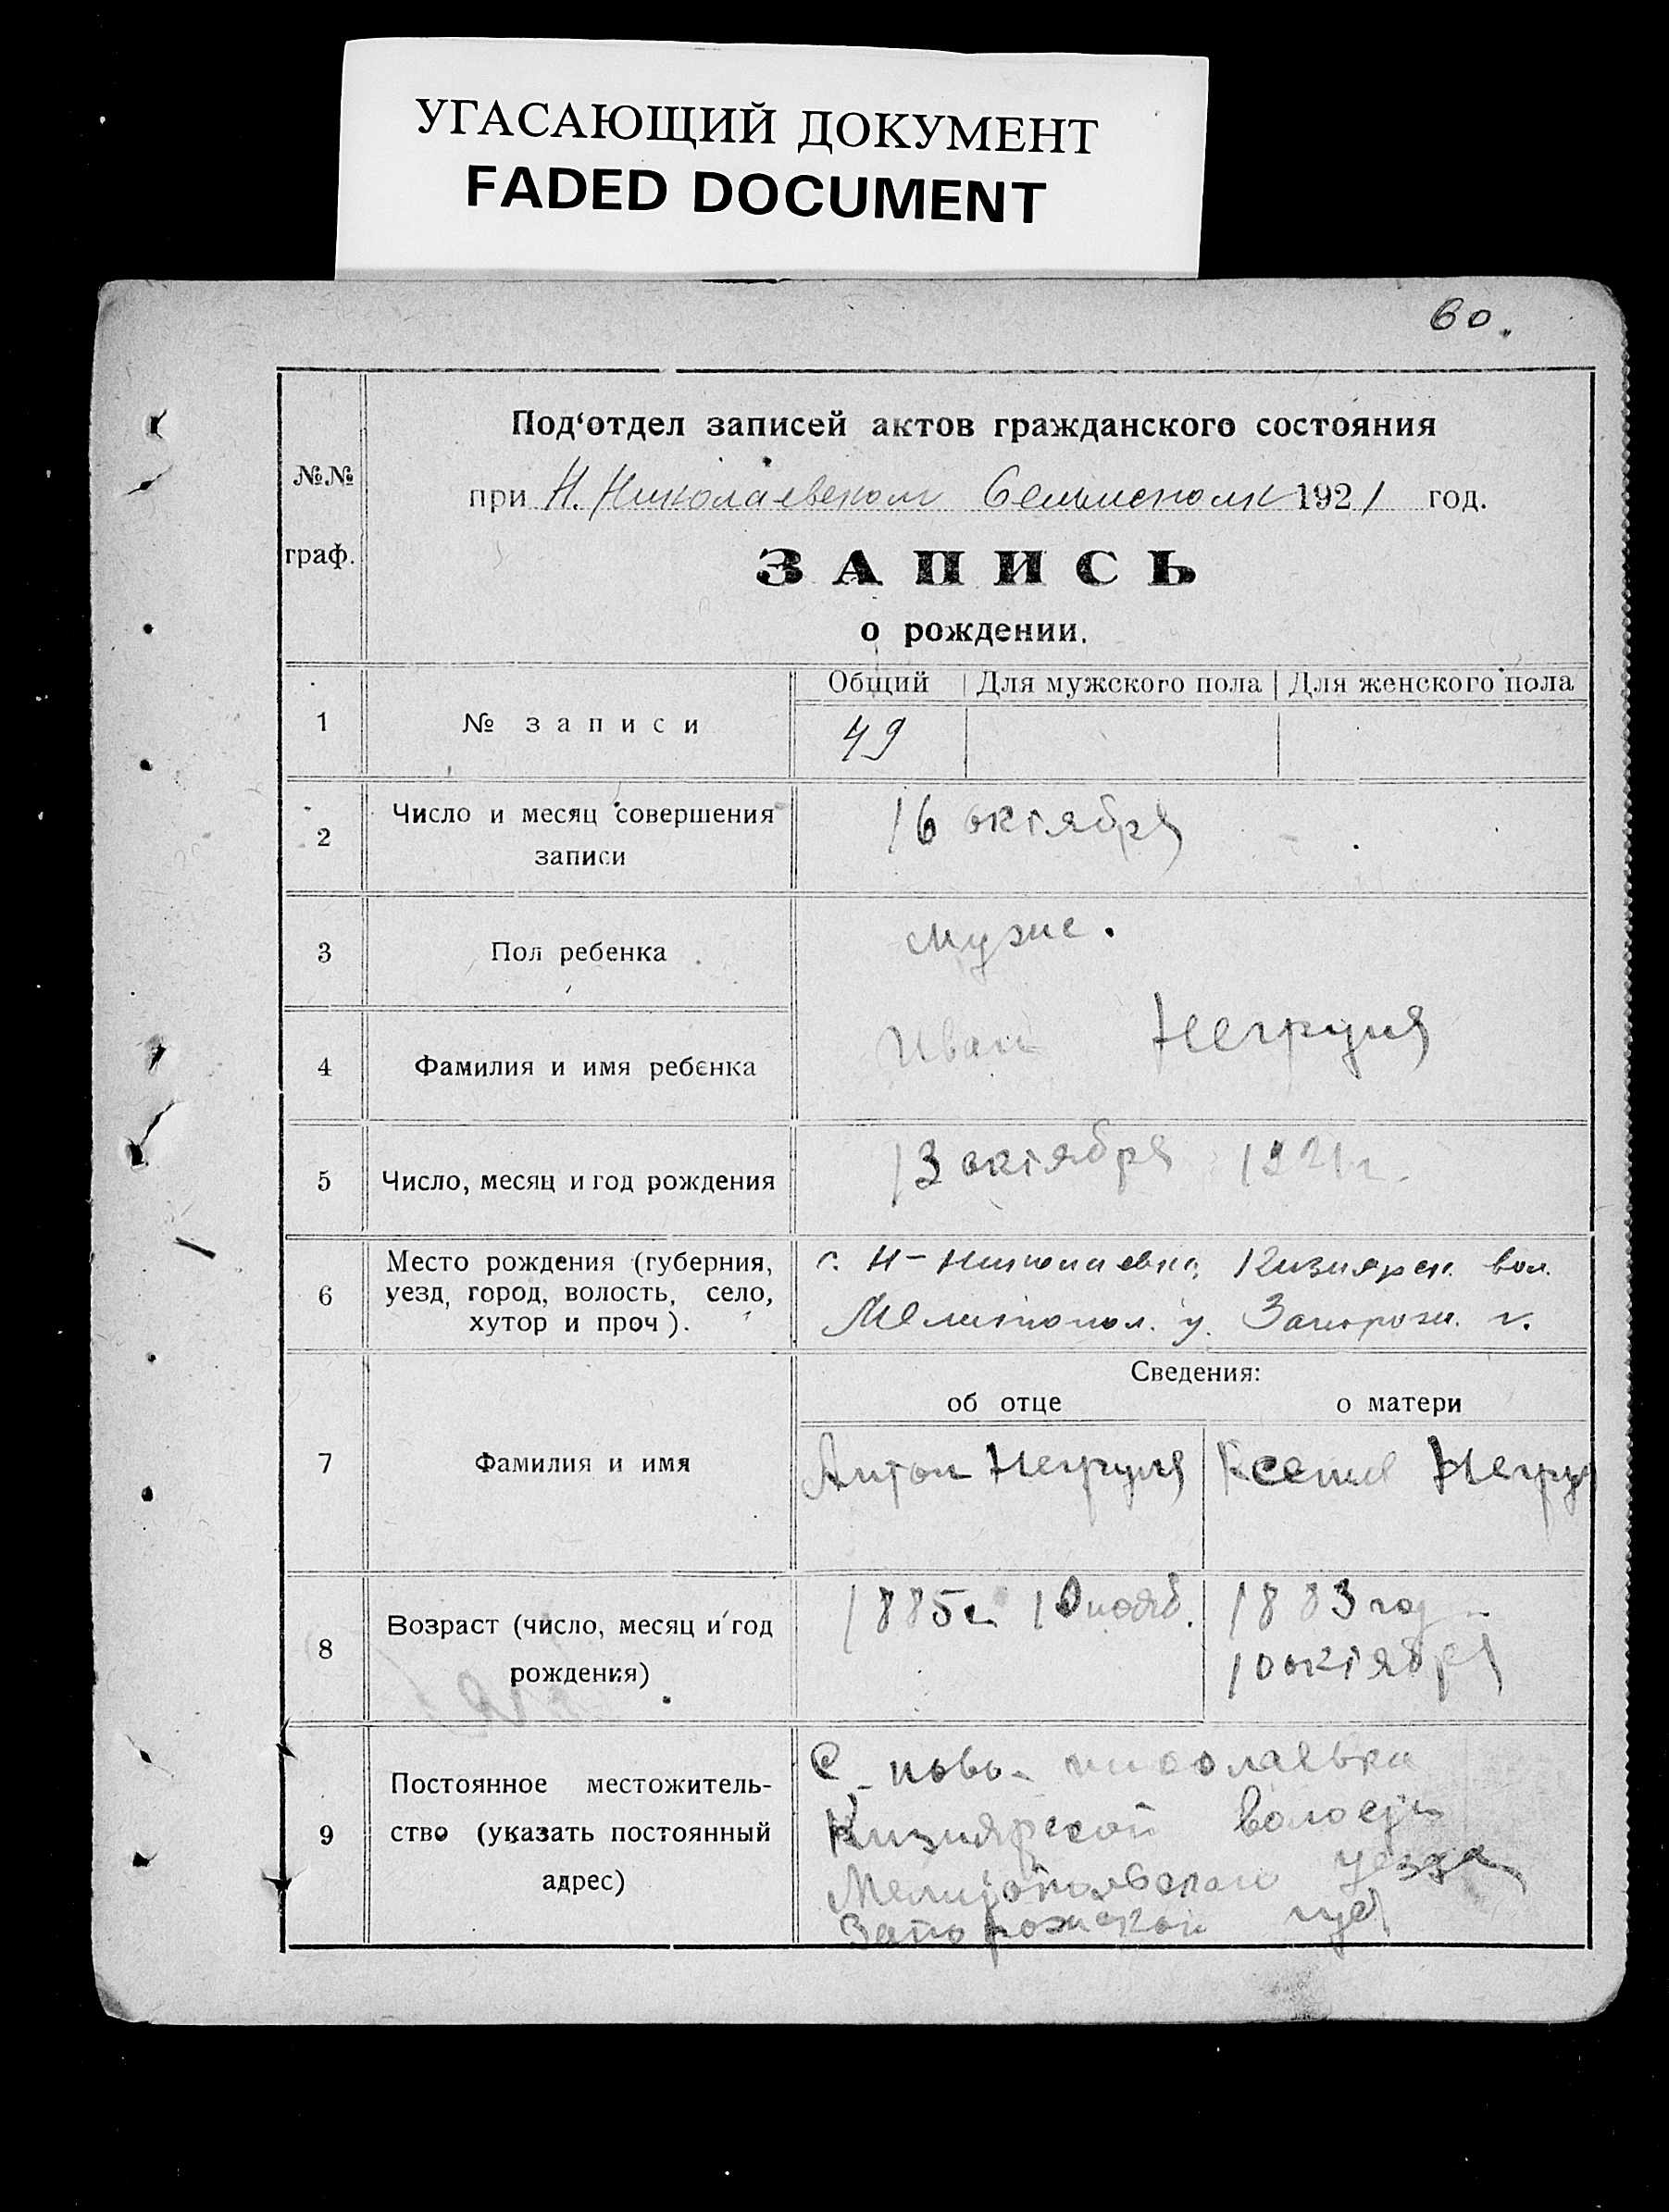 УГАСАЮЩИЙ ДОКУМЕНТ
FADED DOCUMENT
60.
№№
граф.
Под'отдел записей актов гражданского состояния
при Н. Николаевском 1921 год.
ЗАПИСЬ
о рождении.
1
№ записи
Общий
Для мужского пола
Для женского пола
49
2
Число и месяц совершения
записи
16 октября
3
Пол ребенка
муже.
4
Фамилия и имя ребенка
Иван Негруля
5
Число, месяц и год рождения
13 октября 1921 г.
6
Место рождения (губерния,
уезд, город, волость, село,
хутор и проч).
с. Н-Николаевка, Кизиярск. вол.
Мелитопол. у. Запорож. г.
Сведения:
об отце
о матери
7
Фамилия и имя
Антон Негруля
Ксения Негру
8
Возраст (число, месяц и год
рождения)
1885 г. 10 нояб.
1883 год
10 октября
9
Постоянное местожитель-
ство (указать постоянный
адрес)
С. ново-николаевка
Кизиярской волости
Мелитопольскаи уезда
Запорожской губ